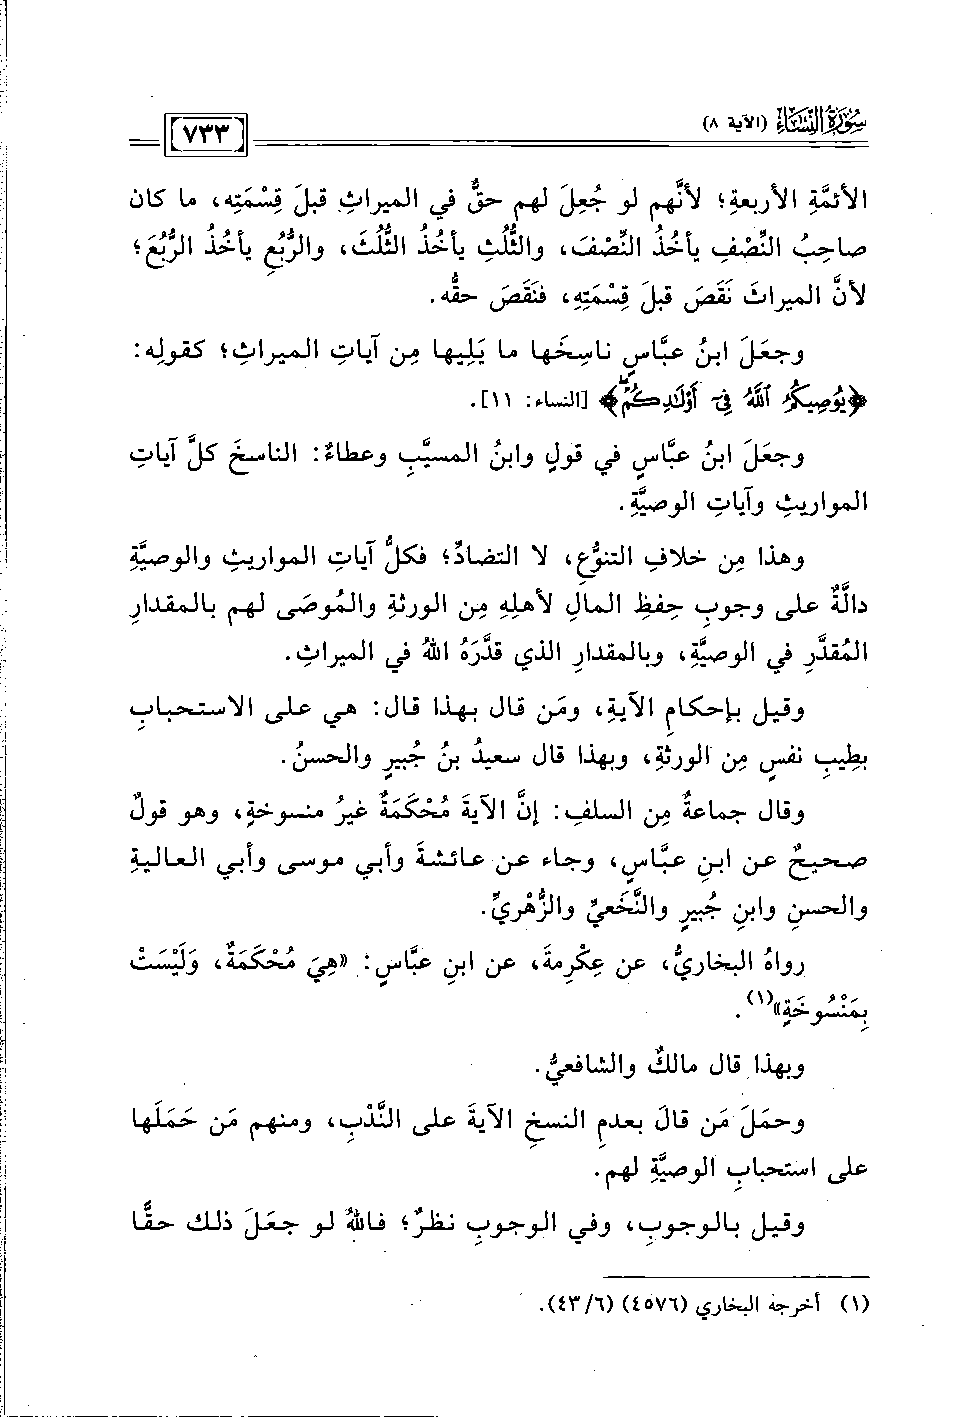 سُورَةُ النِّسَاءِ (الآية ٨)
٧٣٣
الأئمَّةِ الأربعةِ؛ لأنَّهم لو جُعِلَ لهم حقٌّ في الميراثِ قبلَ قِسْمَتِه، ما كان
صاحِبُ النِّصْفِ يأخُذُ النِّصْفَ، والثُّلُثِ يأخُذُ الثُّلُثَ، والرُّبُعِ يأخُذُ الرُّبُعَ؛
لأنَّ الميراثَ نَقَصَ قبلَ قِسْمَتِهِ، فنَقَصَ حقُّه.
وجعَلَ ابنُ عبَّاسٍ ناسِخَها ما يَلِيها مِن آياتِ الميراثِ؛ كقولِه:
﴿يُوصِيكُمُ ٱللَّهُ فِىٓ أَوْلَـٰدِكُمْۖ﴾ [النساء: ١١].
وجعَلَ ابنُ عبَّاسٍ في قولٍ وابنُ المسيَّبِ وعطاءٌ: الناسخَ كلَّ آياتِ
المواريثِ وآياتِ الوصيَّةِ.
وهذا مِن خلافِ التنوُّعِ، لا التضادِّ؛ فكلُّ آياتِ المواريثِ والوصيَّةِ
دالَّةٌ على وجوبِ حِفظِ المالِ لأهلِهِ مِن الورثةِ والمُوصَى لهم بالمقدارِ
المُقدَّرِ في الوصيَّةِ، وبالمقدارِ الذي قدَّرَهُ اللهُ في الميراثِ.
وقيل بإحكامِ الآيةِ، ومَن قال بهذا قال: هي على الاستحبابِ
بطِيبِ نفسٍ مِن الورثةِ، وبهذا قال سعيدُ بنُ جُبيرٍ والحسنُ.
وقال جماعةٌ مِن السلفِ: إنَّ الآيةَ مُحْكَمَةٌ غيرُ منسوخةٍ، وهو قولٌ
صحيحٌ عن ابنِ عبَّاسٍ، وجاء عن عائشةَ وأبي موسى وأبي العاليةِ
والحسنِ وابنِ جُبيرٍ والنَّخَعيِّ والزُّهْريِّ.
رواهُ البخاريُّ، عن عِكْرِمةَ، عن ابنِ عبَّاسٍ: «هِيَ مُحْكَمَةٌ، وَلَيْسَتْ
بِمَنْسُوخَةٍ»(١).
وبهذا قال مالكٌ والشافعيُّ.
وحمَلَ مَن قالَ بعدمِ النسخِ الآيةَ على النَّدْبِ، ومنهم مَن حَمَلَها
على استحبابِ الوصيَّةِ لهم.
وقيل بالوجوبِ، وفي الوجوبِ نظرٌ؛ فاللهُ لو جعَلَ ذلك حقًّا
(١) أخرجه البخاري (٤٥٧٦) (٦/ ٤٣).